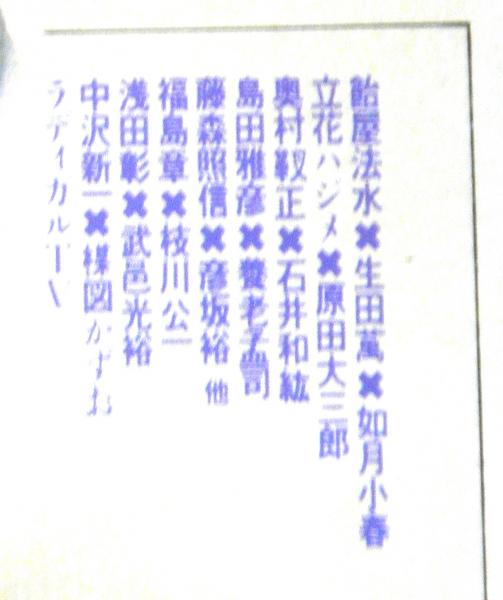 飴屋法水✖生田萬✖如月小春
立花ハジメ✖原田大三郎
奥村靫正✖石井和紘
島田雅彦✖養老孟司
藤森照信✖彦坂裕 他
福島章✖枝川公一
浅田彰✖武邑光裕
中沢新一✖楳図かずお
ラディカルTV